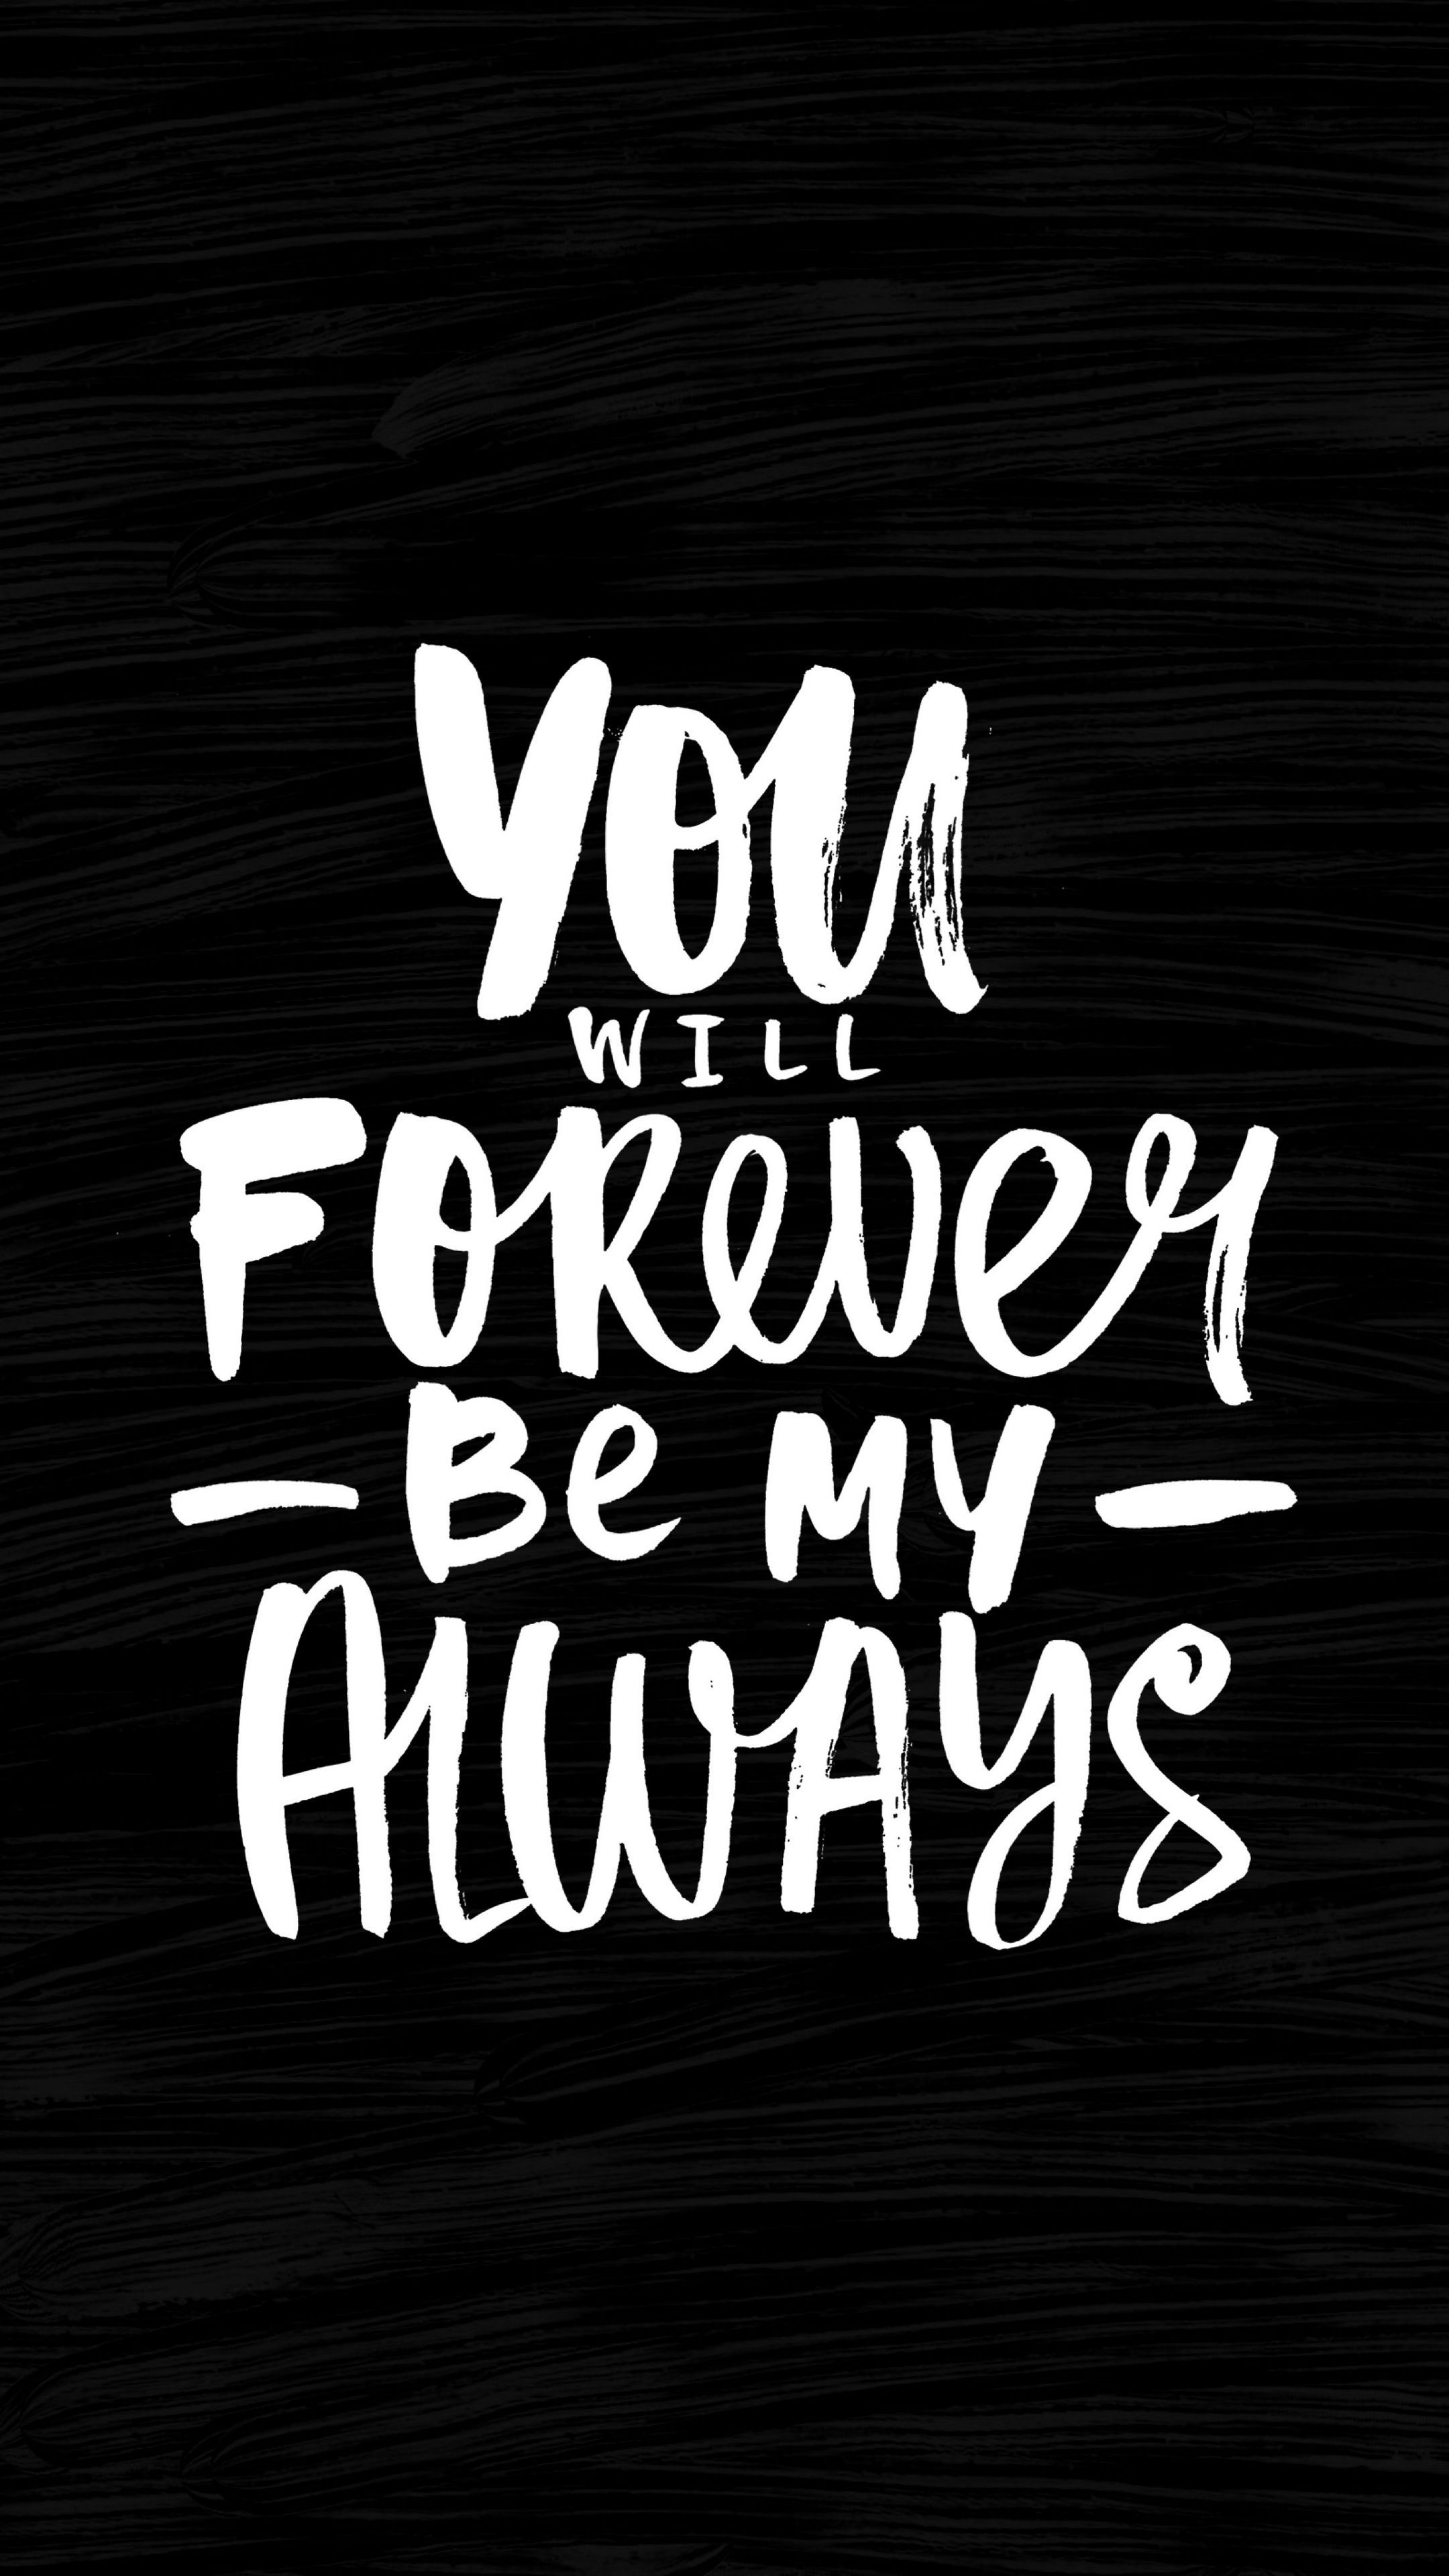 YOU
WILL
FOReveR
Be MY
ALWAYS